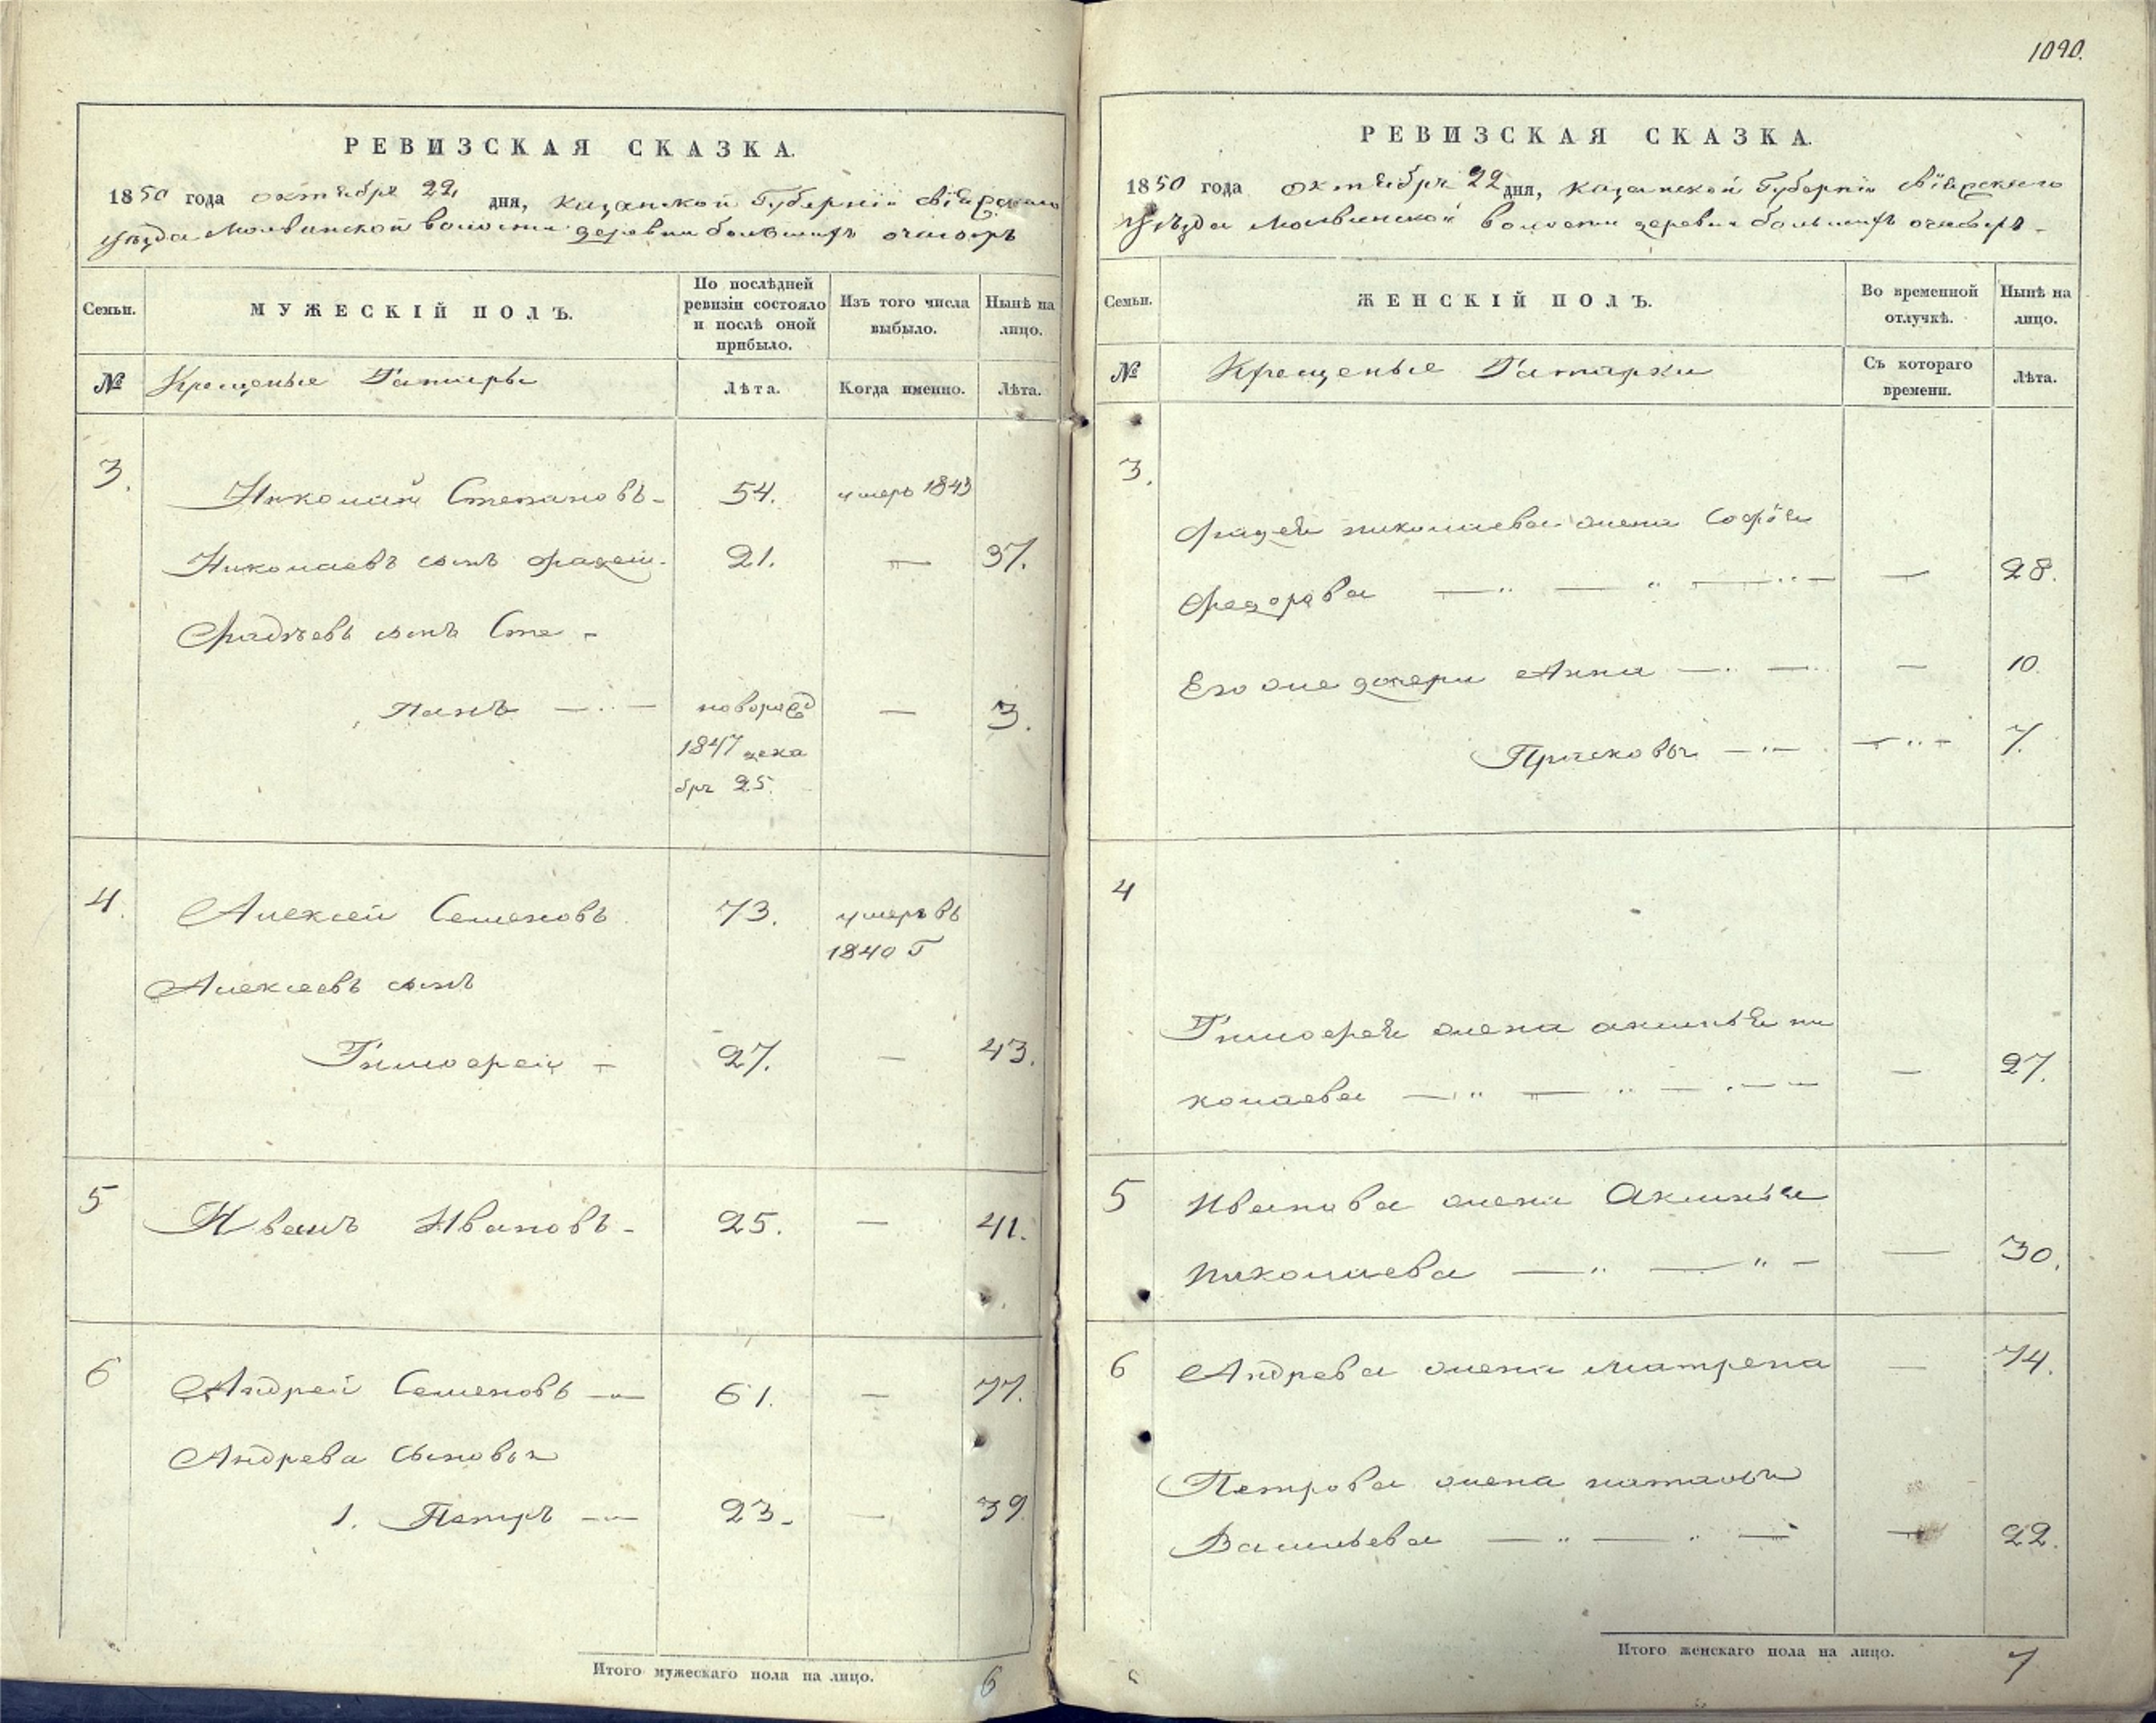 РЕВИЗСКАЯ СКАЗКА.
1850 года октября 22 дня, казанской Губерніи свіяжскаго
уѣзда Молвинской волости деревни большихъ очагыръ
Семьи. МУЖЕСКІЙ ПОЛЪ. По послѣдней ревизіи состояло и послѣ оной прибыло. Изъ того числа выбыло. Нынѣ на лицо.
№ Крещеные Татары Лѣта. Когда именно. Лѣта.
3. Николай Степановъ 54. умеръ 1843
Николаевъ сынъ Фадей 21. — 37.
Фадѣевъ сынъ Сте-
панъ — новорожд — 3.
1847 дека
бря 25.
4. Алексей Семеновъ 73. умеръ въ
1840 г
Алексеевъ сынъ
Тимофеи — 27. — 43.
5 Иванъ Ивановъ 25. — 41.
6 Андрей Семеновъ — 61. — 77.
Андрева сыновья
1. Петръ — 23. — 39
Итого мужескаго пола на лицо. 6
1090.
РЕВИЗСКАЯ СКАЗКА.
1850 года октября 22 дня, казанской Губерніи свіяжскаго
уѣзда Молвинской волости деревни большихъ
Семьи. ЖЕНСКІЙ ПОЛЪ. Во временной отлучкѣ. Нынѣ на лицо.
№ Крещеные Татарки Съ котораго времени. Лѣта.
3.
Фадея николаева жена Софія
Федорова — — 28.
Его же дочери Анна — — 10.
Прасковья — — 7.
4
Тимофея жена акинья ни
колаева — — 27.
5 Иванова жена Акинья
Николаева — — 30.
6 Андрева жена матрена — 74.
Петрова жена наталья
Васильева — — 22.
Итого женскаго пола на лицо. 7